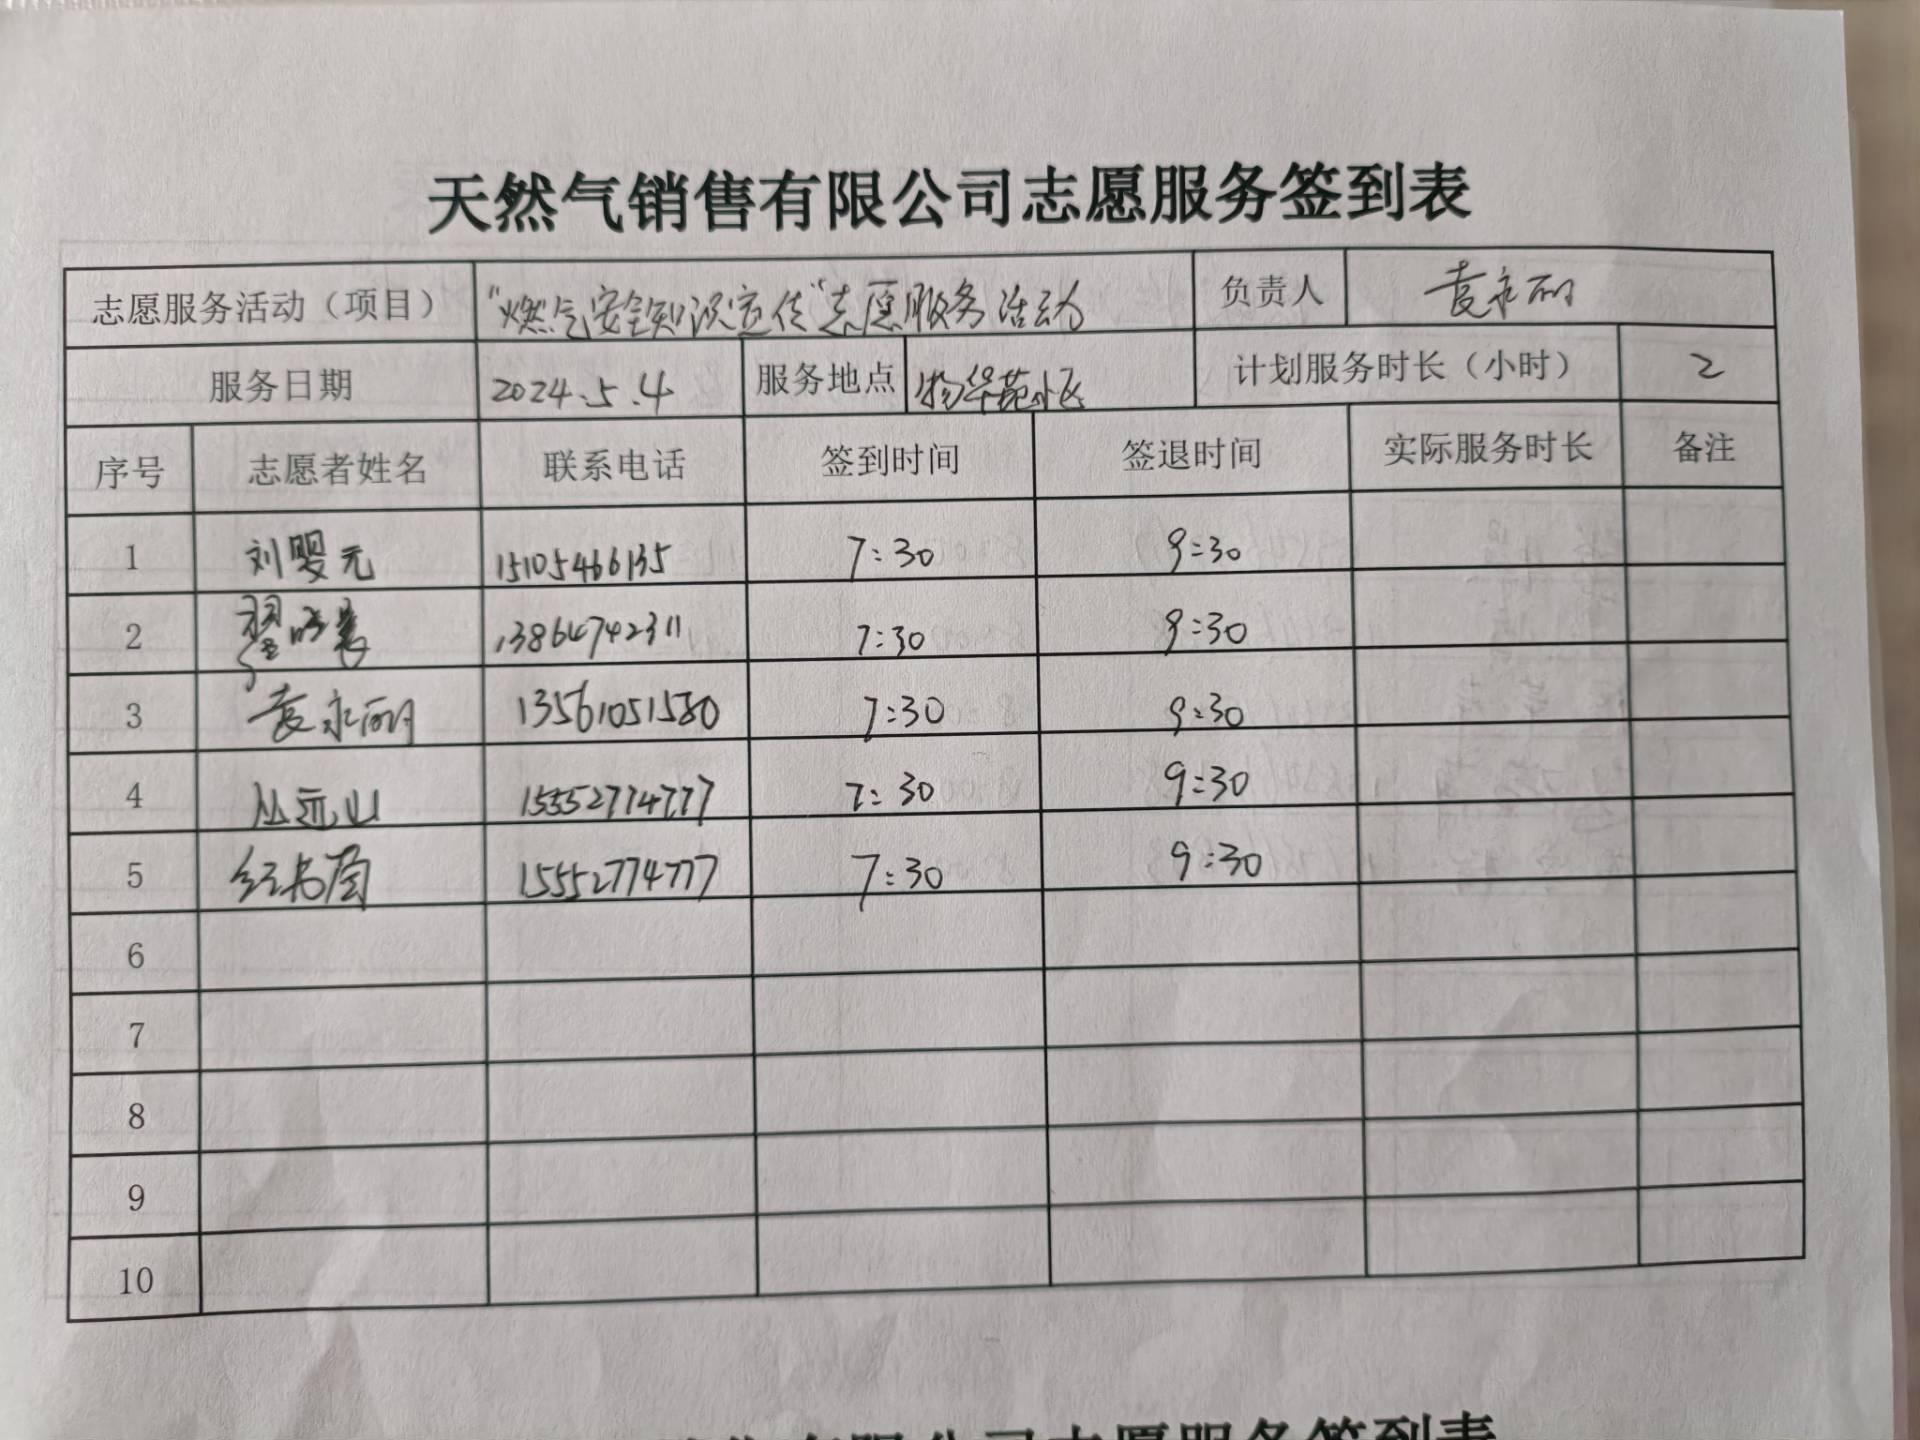 天然气销售有限公司志愿服务签到表
志愿服务活动（项目） “燃气安全知识宣传”志愿服务活动 负责人 袁永丽
服务日期 2024.5.4 服务地点 物华苑小区 计划服务时长（小时） 2
序号 志愿者姓名 联系电话 签到时间 签退时间 实际服务时长 备注
1 刘婴元 15105466135 7:30 9:30
2 13864742311 7:30 9:30
3 袁永丽 13561051580 7:30 9:30
4 丛远山 15552774777 7:30 9:30
5 15552774777 7:30 9:30
6
7
8
9
10
有限公司志愿服务签到表